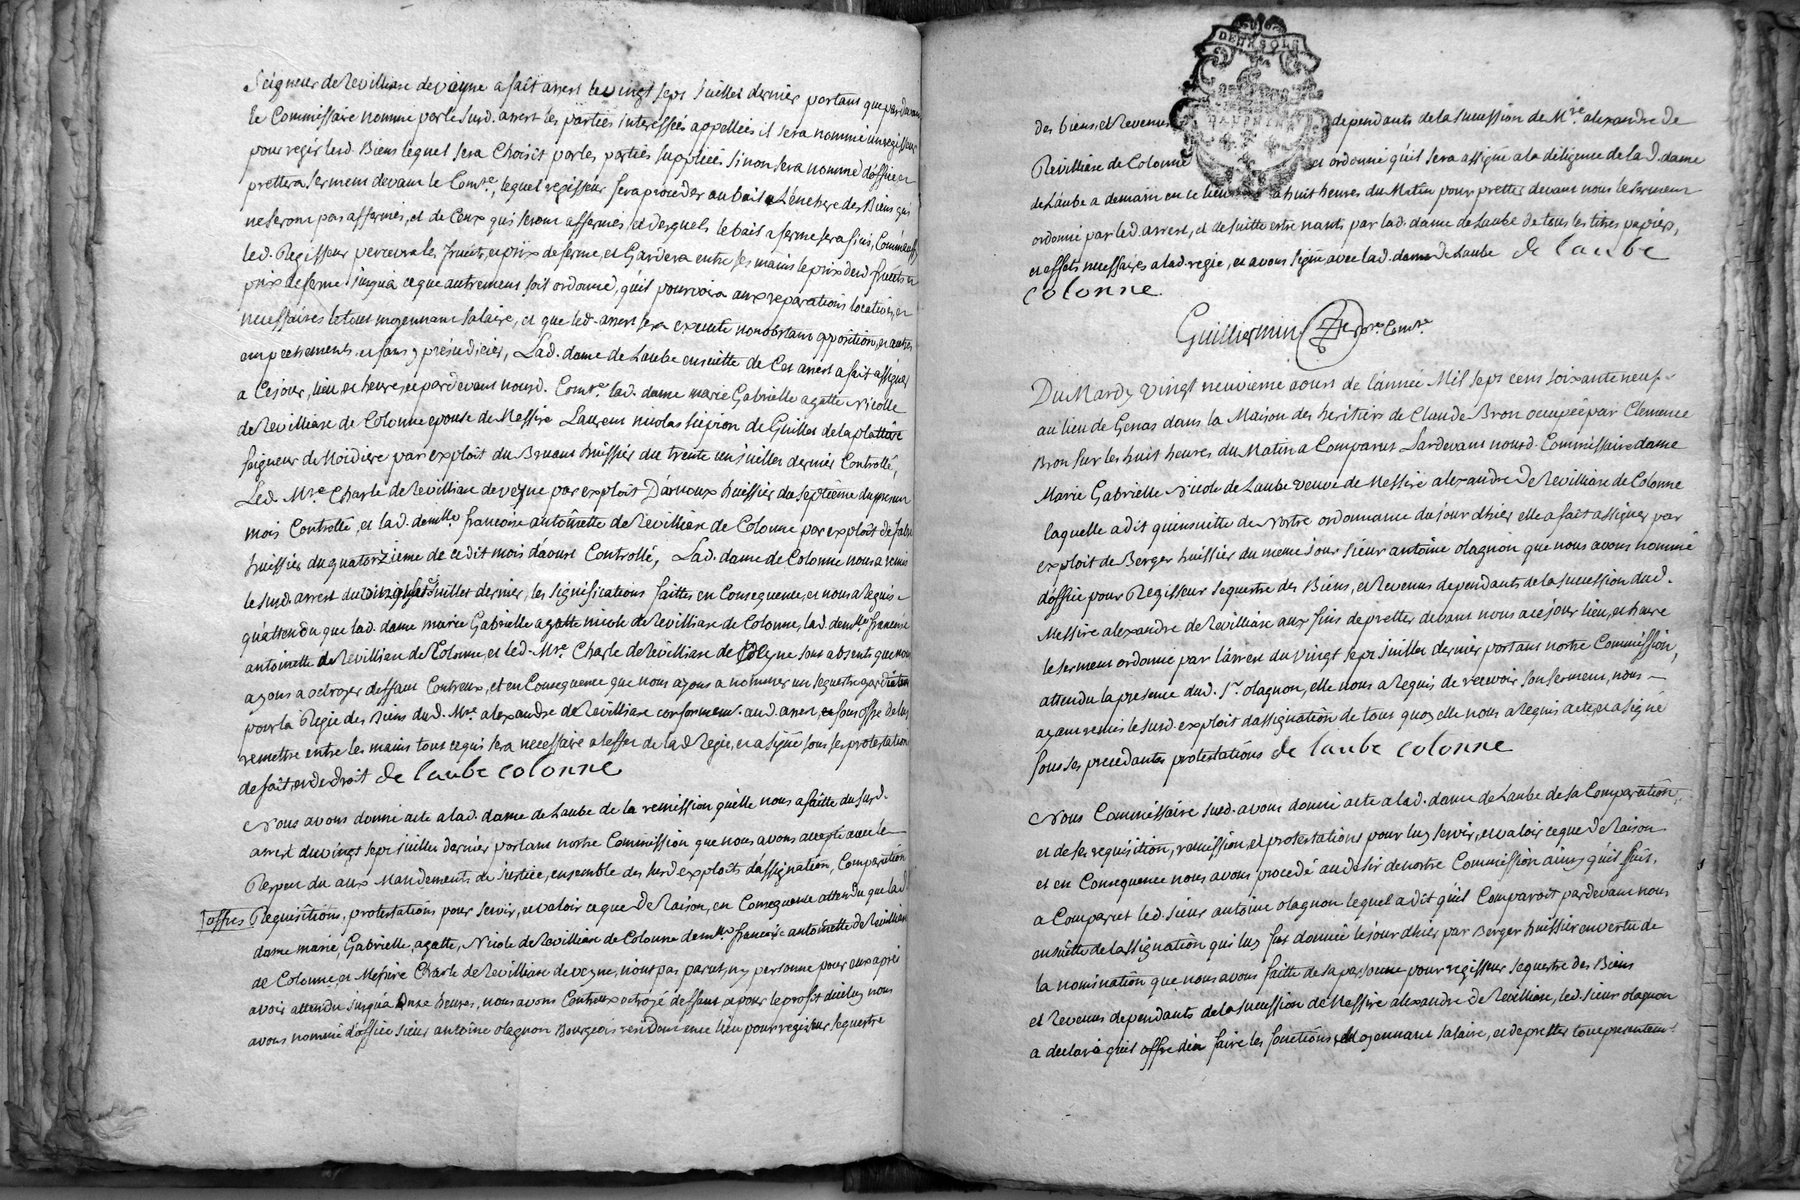 Seigneur de Revilliase de veyne a fait arrest le vingt sept juillet dernier portant que pardevant
le Commissaire nommé par le Surd. arrest les parties interessées appellées il sera nommé un regisseur
pour regir lesd. Biens lequel sera Choisit par les parties supplices sinon sera nommé d'office et
prettera serment devant le Comre, lequel regisseur fera proceder au bail a L'enchere des Biens qui
ne seront pas affermés, et de Ceux qui seront affermés, et desquels le bail a ferme sera fini, Comme aussy
led. Regisseur percevra les fruits, et prix de ferme, et Gardera entre ses mains le prix desd fruits et
prix de ferme jusqu'a ce que autrement soit ordonné, qu'il pourvoira aux reparations locatives, et
necessaires le tout moyennant salaire, et que led. arrest sera executé nonobstant opposition, et autres
empechements, et sans y préjudicier, Lad. dame de Laube ensuitte de Cet arrest a fait assigner
a Ce jour, lieu, et heure, et pardevant nousd. Comre lad. dame marie Gabrielle agatte Nicolle
de Revilliase de Colonne epouse de Messire Laurens nicolas scipion de Guillet de la plattiere
Seigneur de Moidiere par exploit du Bruant huissier du trente un juillet dernier Controllé,
Led. Mre. Charle de Revilliase de veyne par exploit D'arnoux huissier du septième du present
mois Controllé, et lad. demlle françoise antoinette de Revilliase de Colonne par exploit de
huissier du quatorzieme de cedit mois d'aoust Controllé, Lad. dame de Colonne nous a remis
le surd. arrest du vingt sept juillet dernier, les significations faittes en Consequence, et nous a Requis
qu'attendu que lad. dame marie Gabrielle agatte nicole de Revilliase de Colonne, lad demlle francoise
antoinette de Revilliase de Colonne, et led. Mre. Charle de Revilliase de Veyne sont absents que nous
ayons a octroyer deffaut Contreux, et en Consequence que nous ayons a nommer un sequestre gardiateur
pour la Regie des Biens dud. Mre. alexandre de Revilliase conformemt. aud. arrest sous offre de luy
remettre entre les mains tout ce qui sera necessaire a l'effet de lad Regie, et a signé sous ses protestations
de fait, et de droit de laube colonne
Nous avons donné acte a lad. dame de Laube de la remission qu'elle nous a faitte du surd.
arrest du vingt sept juillet dernier portant nostre Commission que nous avons accepté avec le
Respect du aux Mandements de justice, ensemble des surd exploits d'assignation, Comparution
offres Requisitions, protestations pour servir, et valoir ce que de Raison, en Consequence attendu que lad.
dame marie, Gabrielle, agatte, Nicole de Revilliase de Colonne demlle francoise antoinette de Revilliase
de Colonne, et Messire Charle de Revilliase de veyne, n'ont pas parut, n'y personne pour eux apres
avoir attendu jusqu'a Onze heures, nous avons Contreux octroyé deffaut et pour le profit d'iceluy nous
avons nommé d'office sieur antoine olagnon Bourgeois residant en ce lieu pour regisseur sequestre
DEUX SOLS
DAUPHINÉ
des biens, et Revenus dependants de la succession de Mre alexandre de
Revilliase de Colonne et ordonné qu'il sera assigné a la diligence de lad. dame
de Laube a demain en ce lieu a huit heures du Matin pour pretter devant nous le serment
ordonné par led. arrest, et de suitte estre nanti par lad. dame de Laube de tous les titres papiers,
et effets necessaires a lad. regie, et avons signé avec lad. dame de Laube de laube
colonne.
Guilliermin Comre
Du Mardy vingt neuvieme aoust de l'année Mil sept cens soixante neuf
au lieu de Genas dans la Maison des heritiers de Claude Bron occupée par Clemence
Bron sur les huit heures du Matin a Comparut Pardevant nousd. Commissaire dame
Marie Gabrielle Nicole de Laube veuve de Messire alexandre de Revilliase de Colonne
laquelle a dit qu'ensuitte de Nostre ordonnance du jour d'hier elle a fait assigner par
exploit de Berger huissier du meme jour sieur antoine olagnon que nous avons nommé
d'office pour Regisseur sequestre des Biens, et Revenus dependants de la succession dud.
Messire alexandre de Revilliase aux fins de pretter devant nous a ce jour lieu, et heure
le serment ordonné par l'arrest du vingt sept juillet dernier portant nostre Commission,
attendu la presence dud. Sr. olagnon, elle nous a Requis de recevoir son serment, nous
ayant remis le surd. exploit d'assignation de tout quoy elle nous a requis acte, et a signé
sous ses precedantes protestations de laube colonne
Nous Commissaire surd. avons donné acte a lad. dame de Laube de sa Comparution,
et de ses requisition, remission, et protestations pour luy servir, et valoir ce que de Raison
et en Consequence nous avons procedé au desir de nostre Commission ainsy qu'il suit.
a Comparut led. sieur antoine olagnon lequel a dit qu'il Comparoit pardevant nous
ensuitte de l'assignation qui luy fut donnée le jour d'hier par Berger huissier en vertu de
la nomination que nous avons faitte de sa personne pour regisseur sequestre des Biens
et Revenus dependants de la succession de Messire alexandre de Revilliase, led. sieur olagnon
a declaré qu'il offre d'en faire les fonctions Moyennant salaire, et de pretter tout presentemt